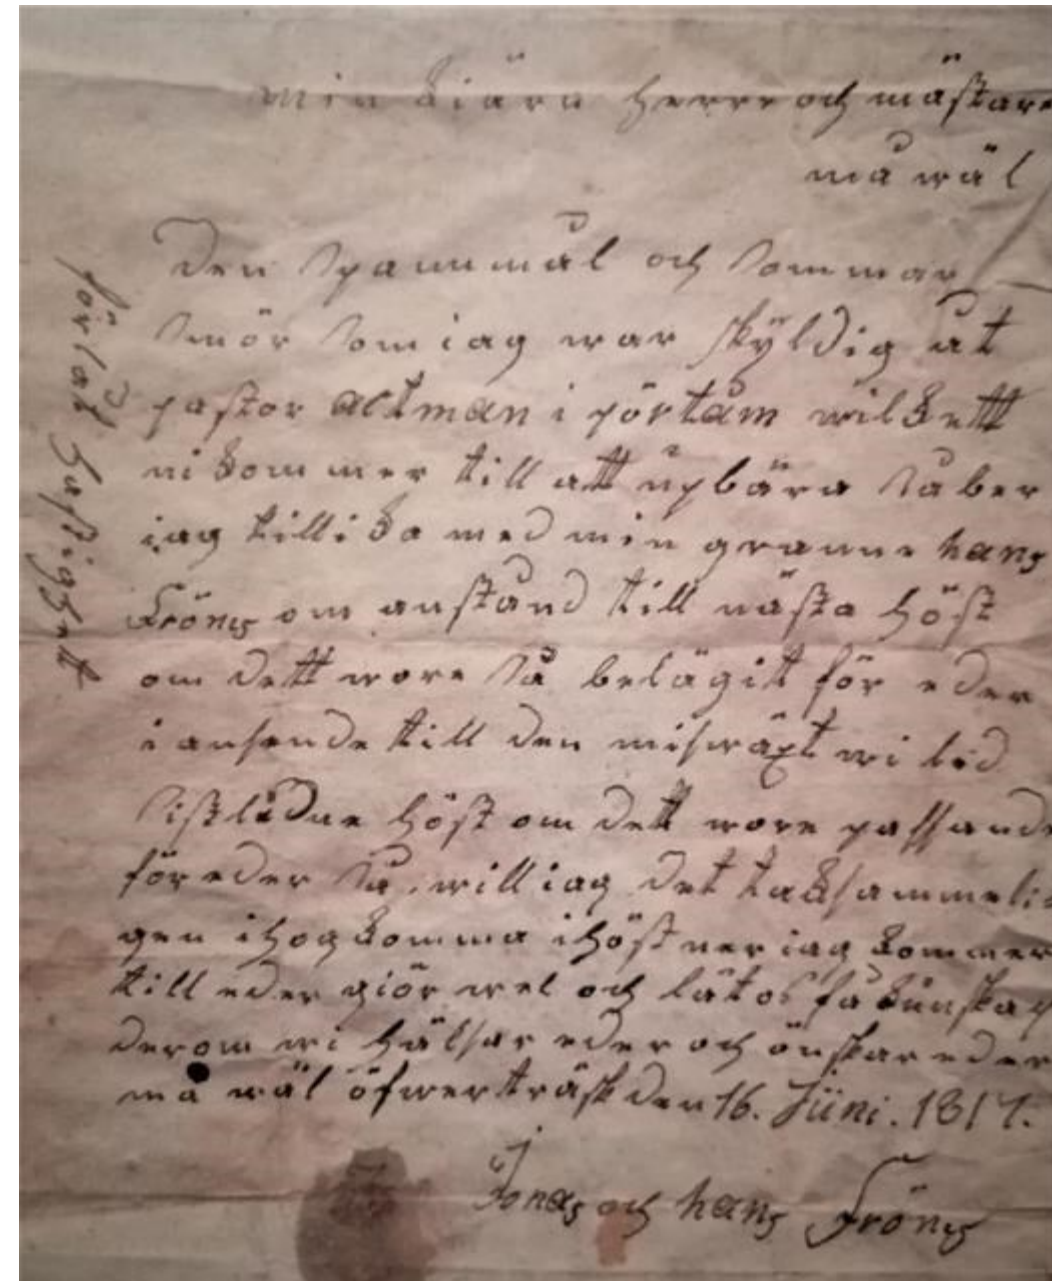 min kiära herre och mästare
må wäl
Den spannmål och sommar
smör som iag war skÿldig åt
pastor altman i pörtåm wilkett
ni kommer till att upbära så ber
iag tillika med min granne hans
Fröns om anstånd till nästa höst
om dett wore så belägit för eder
i ansende till den miswäxt wi led
sistlidne höst om dett wore passande
för eder så will iag det taksammeli
gen ihogkomma i höst ner iag kommer
till eder giör wel och låt os få kunskap
derom wi hälsar eder och önskar eder
må wäl öfwerträsk den 16. Juni. 1817.
Jonas och hans Fröns
förlåt hastighett